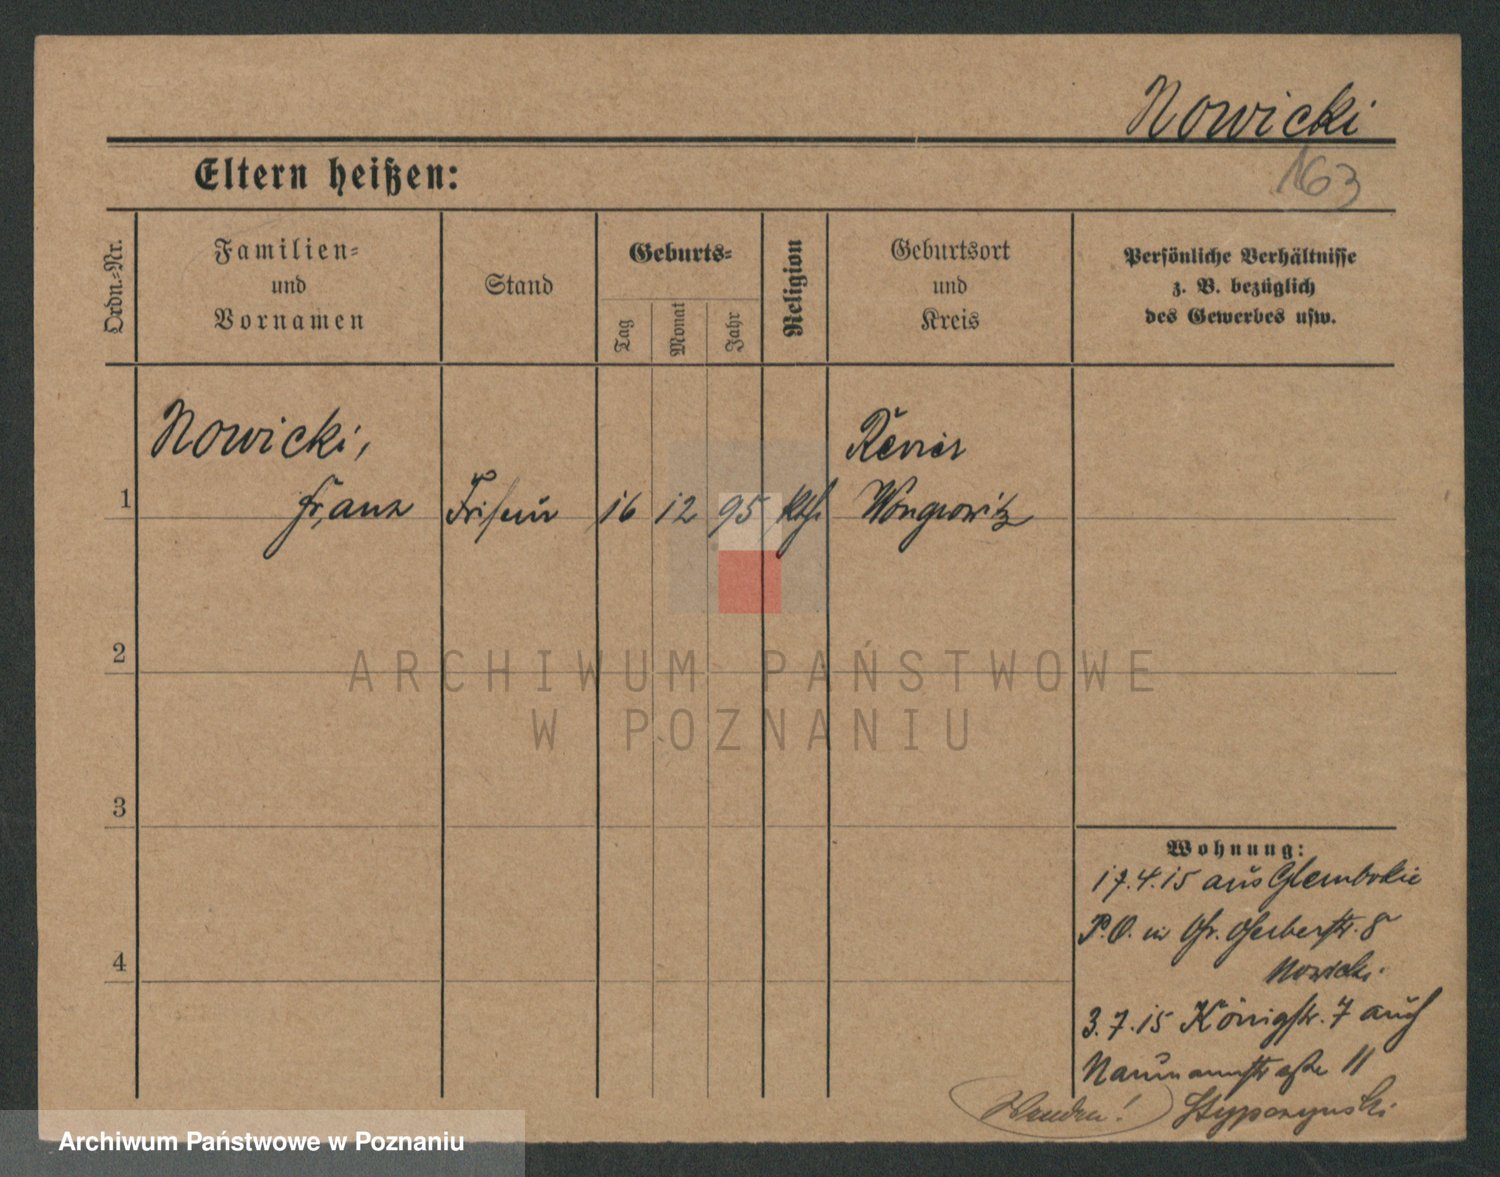 Nowicki
163
Eltern heißen:
Ordn.-Nr.
Familien-
und
Vornamen
Stand
Geburts-
Tag
Monat
Jahr
Religion
Geburtsort
und
Kreis
Persönliche Verhältnisse
z. B. bezüglich
des Gewerbes usw.
Nowicki,
1 Franz Friseur 16 12 95 kth.
Wongrowitz
2
3
4
Wohnung:
17.4.15 aus Glembokie
P.O. in Gr. Gerberstr. 8
Nowicki.
3.7.15 Königstr. 7 auch
Naumannstraße 11
Stypczynski
ARCHIWUM PAŃSTWOWE
W POZNANIU
Archiwum Państwowe w Poznaniu